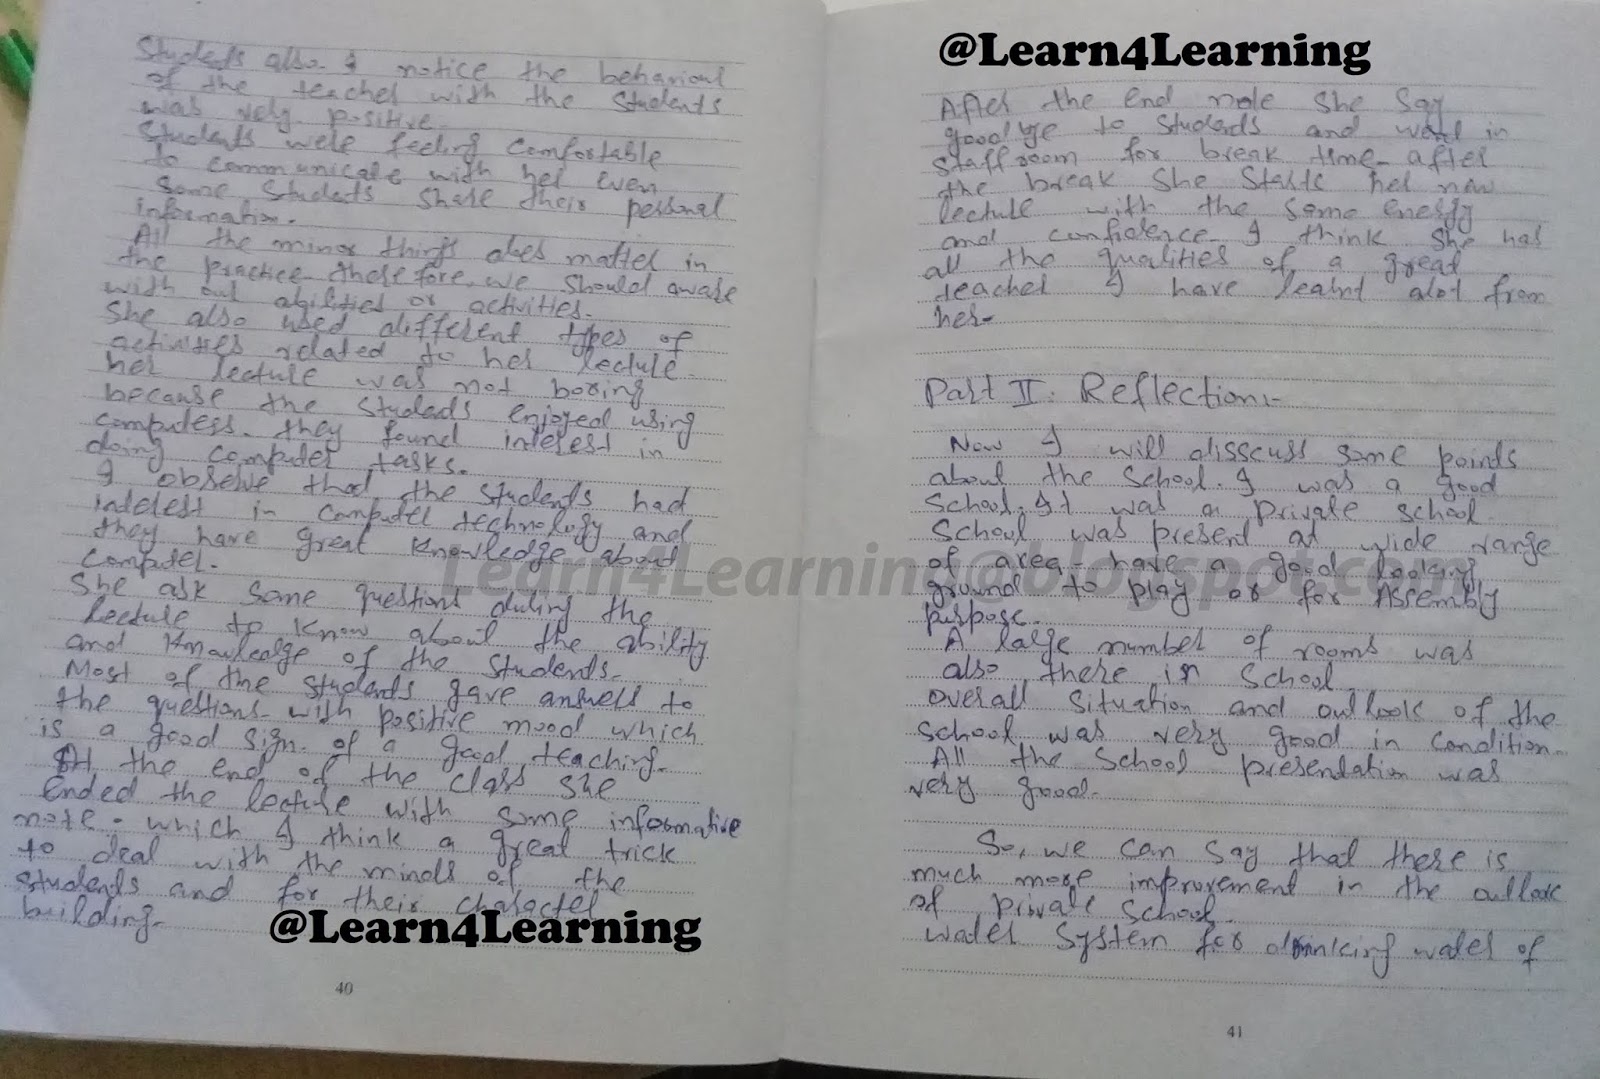 Students also. I notice the behaviour
of the teacher with the students
was very positive.
Students were feeling comfortable
to communicate with her even
some students share their personal
information.
All the minor things does matter in
the practice therefore, we should aware
with our abilities or activities.
She also used different types of
activities related to her lecture.
her lecture was not boring
because the students enjoyed using
computers. they found interest in
doing computer tasks.
I observe that the students had
interest in computer technology and
they have great knowledge about
computer.
She ask some questions during the
lecture to know about the ability
and knowledge of the students.
Most of the students gave answers to
the questions with positive mood which
is a good sign of a good teaching.
At the end of the class she
ended the lecture with some informative
note. which I think a great trick
to deal with the minds of the
students and for their character
building.
@Learn4Learning
40
@Learn4Learning
After the end note she say
goodbye to students and went in
staffroom for break time. after
the break she starts her new
lecture with the same energy
and confidence. I think she has
all the qualities of a great
teacher I have learnt alot from
her.
Part II: Reflection:-
Now I will disscuss some points
about the school. I was a good
school. It was a private school.
School was present at wide range
of area. have a good looking
ground to play or for Assembly
purpose.
A large number of rooms was
also there in school.
overall situation and outlook of the
school was very good in condition.
All the school presentation was
very good.
So, we can say that there is
much more improvement in the outlook
of private school.
water system for drinking water of
41
Learn4Learning@blogspot.com